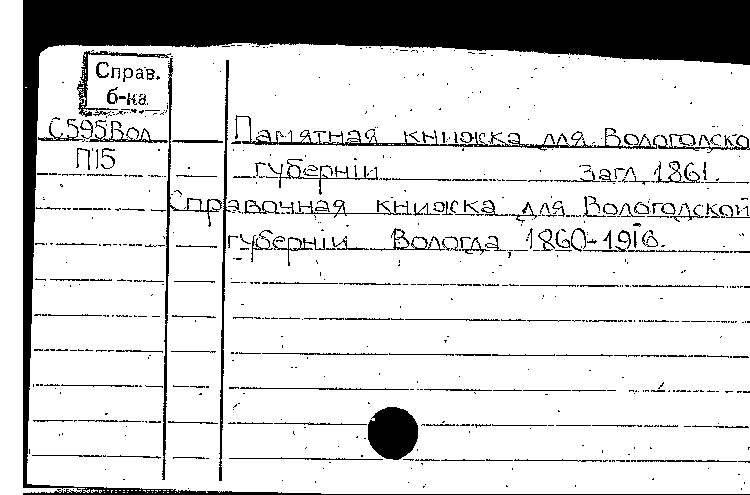 Справ.
б-ка
С595Вол
П15
Памятная книжка для Вологодско
губерніи загл. 1861.
Справочная книжка для Вологодской
губерніи Вологда, 1860-1916.